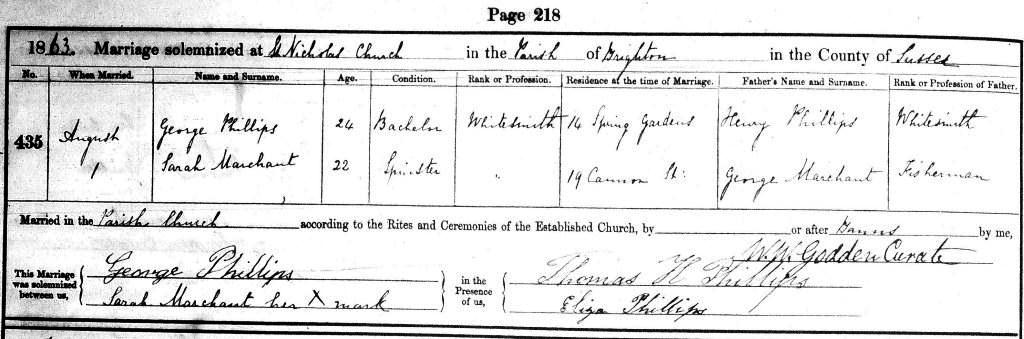 Page 218
1863. Marriage solemnized at St Nicholas Church in the Parish of Brighton in the County of Sussex
No. When Married. Name and Surname. Age. Condition. Rank or Profession. Residence at the time of Marriage. Father's Name and Surname. Rank or Profession of Father.
435 August 1 George Phillips 24 Bachelor Whitesmith 14 Spring Gardens Henry Phillips Whitesmith
Sarah Marchant 22 Spinster " 19 Cannon St: George Marchant Fisherman
Married in the Parish Church according to the Rites and Ceremonies of the Established Church, by or after Banns by me,
Godden Curate
This Marriage was solemnized between us, George Phillips in the Presence of us, Thomas H Phillips
Sarah Marchant her X mark Eliza Phillips